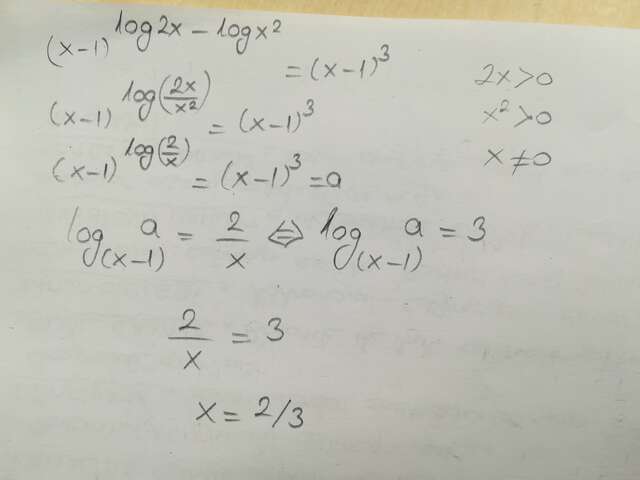 (x-1)^(log2x - logx²) = (x-1)³
2x>0
(x-1)^(log(2x/x²)) = (x-1)³
x²>0
(x-1)^(log(2/x)) = (x-1)³ = a
x≠0
log_(x-1) a = 2/x ⇔ log_(x-1) a = 3
2/x = 3
x = 2/3